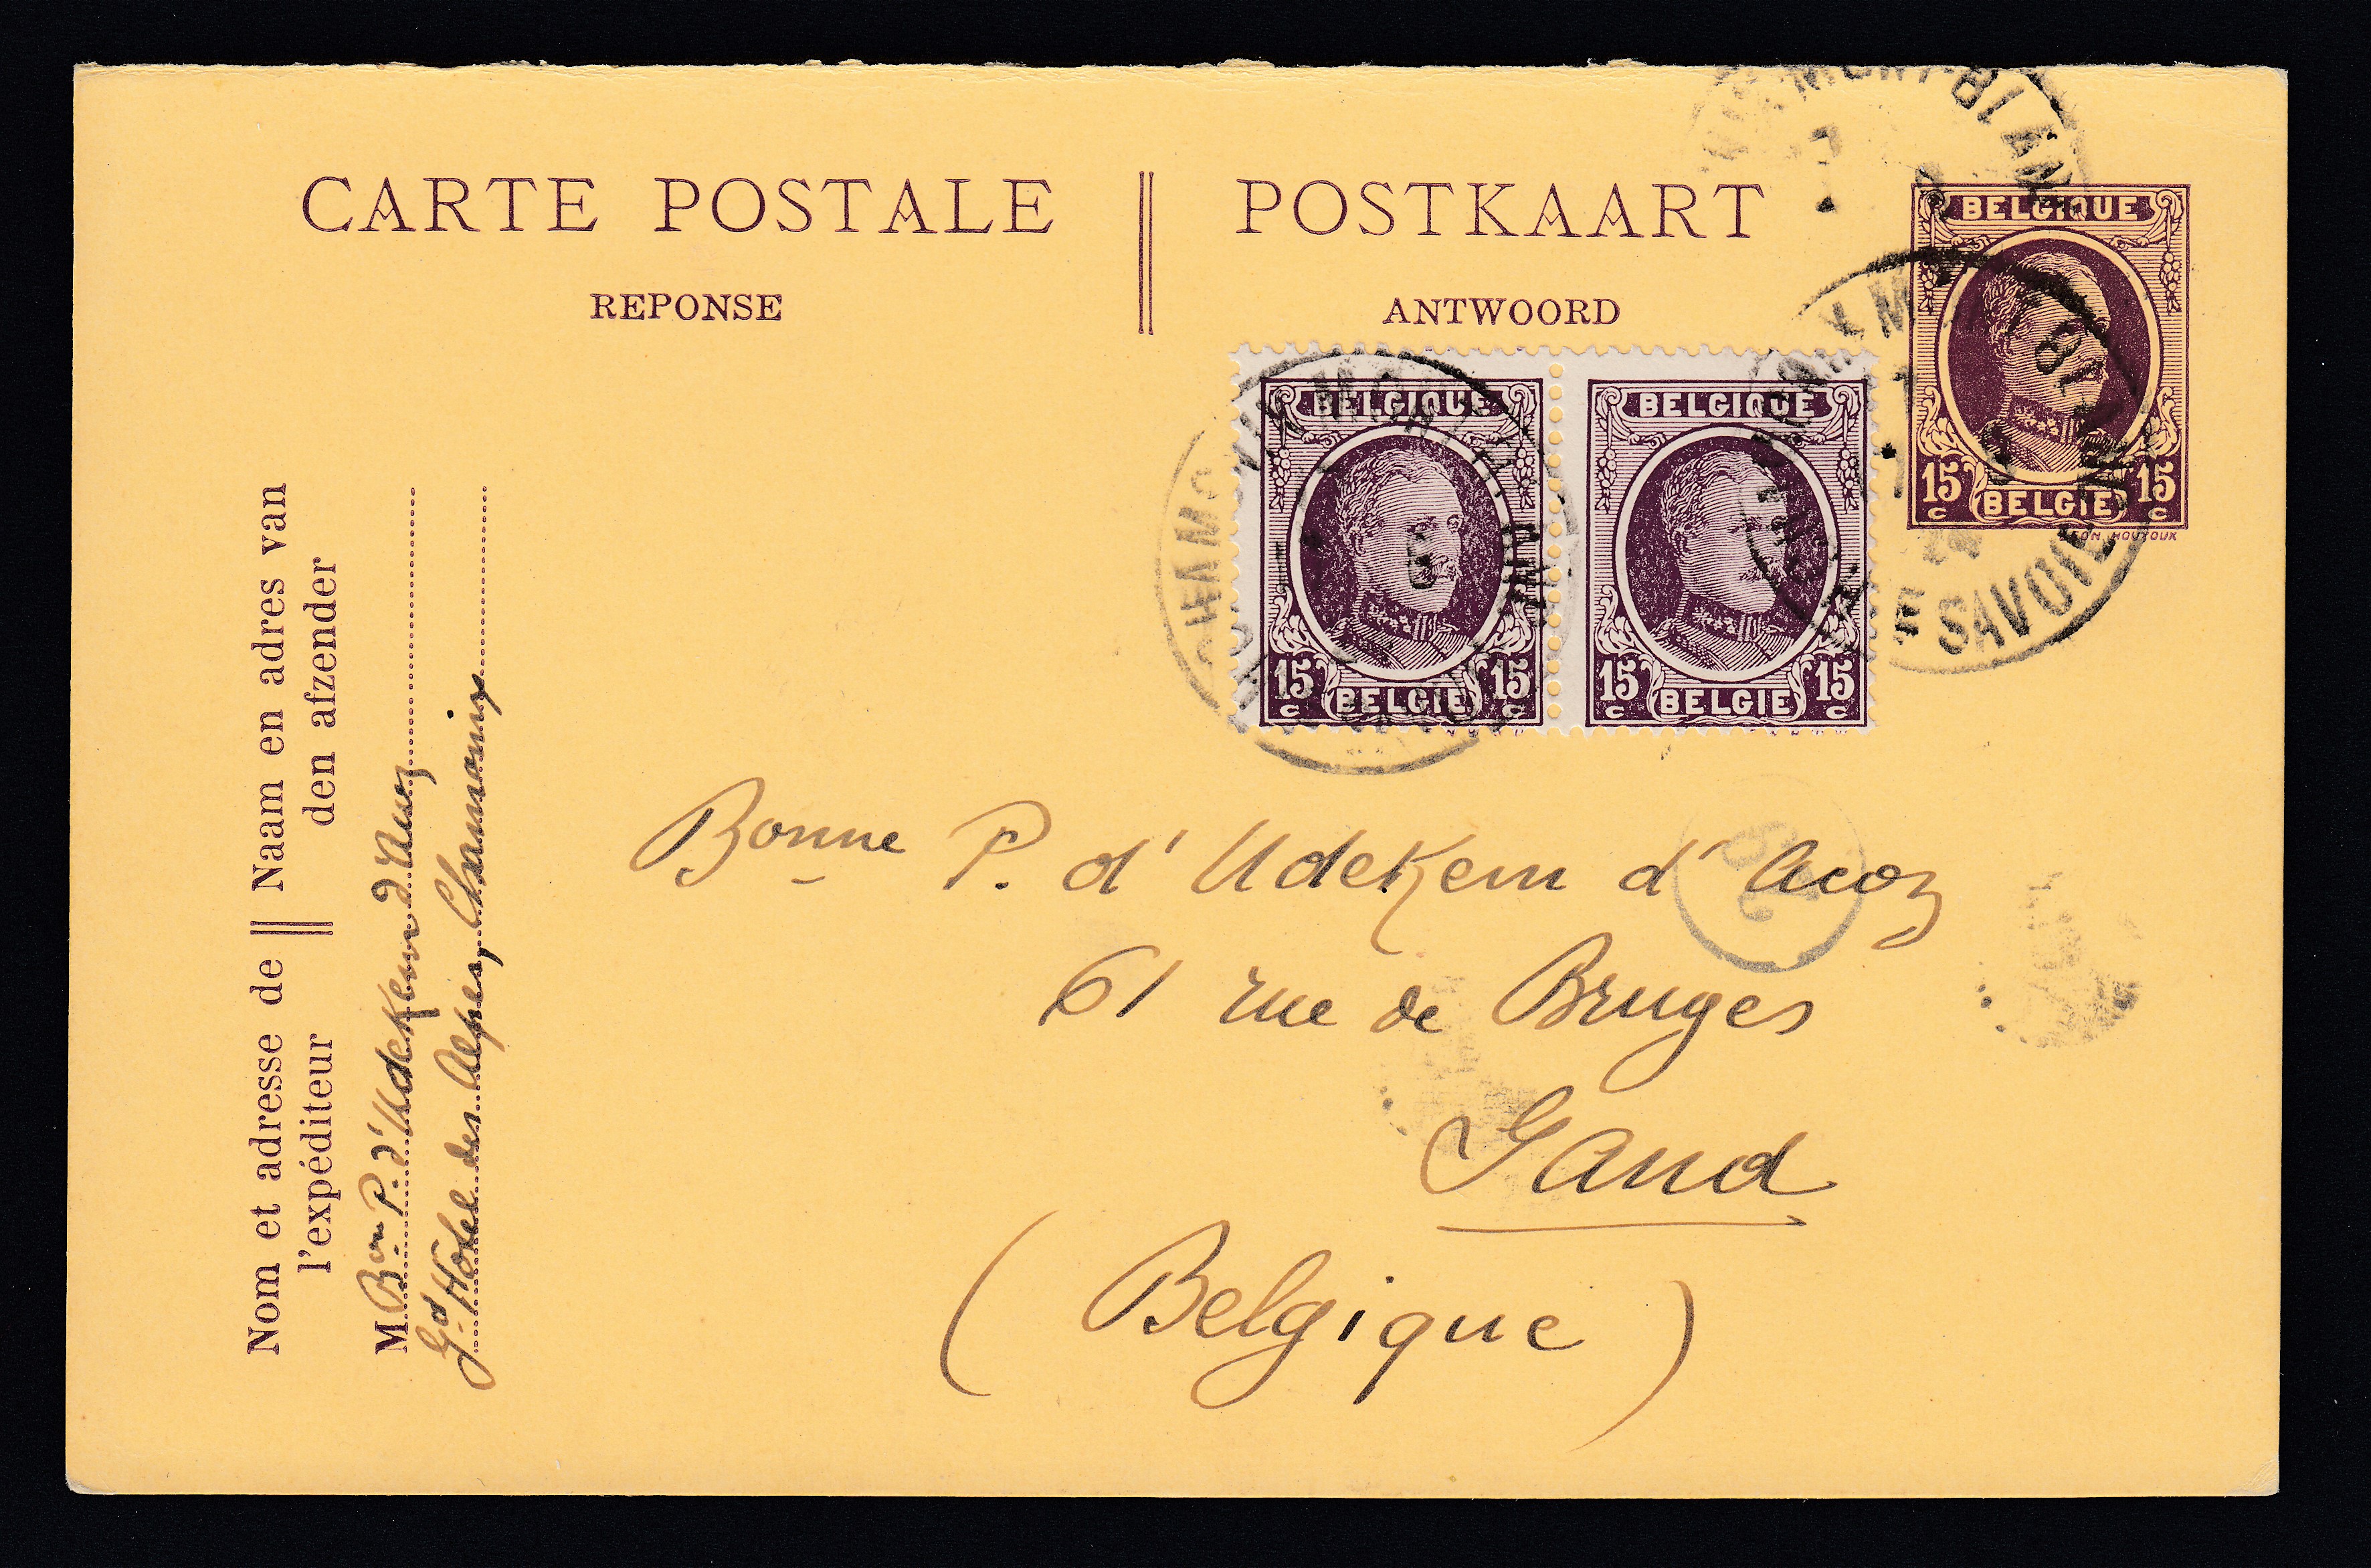 CARTE POSTALE || POSTKAART
REPONSE
ANTWOORD
BELGIQUE
15 c BELGIE 15 c
BELGIQUE
15 c BELGIE 15 c
BELGIQUE
15 c BELGIE 15 c
MONT-BLANC
SAVOIE
Nom et adresse de || Naam en adres van
l'expéditeur || den afzender
M. Bon P. d'Udekem d'Acoz
Gd Hôtel des Alpes, Chamonix
Bonne P. d'Udekem d'Acoz
61 rue de Bruges
Gand
(Belgique)